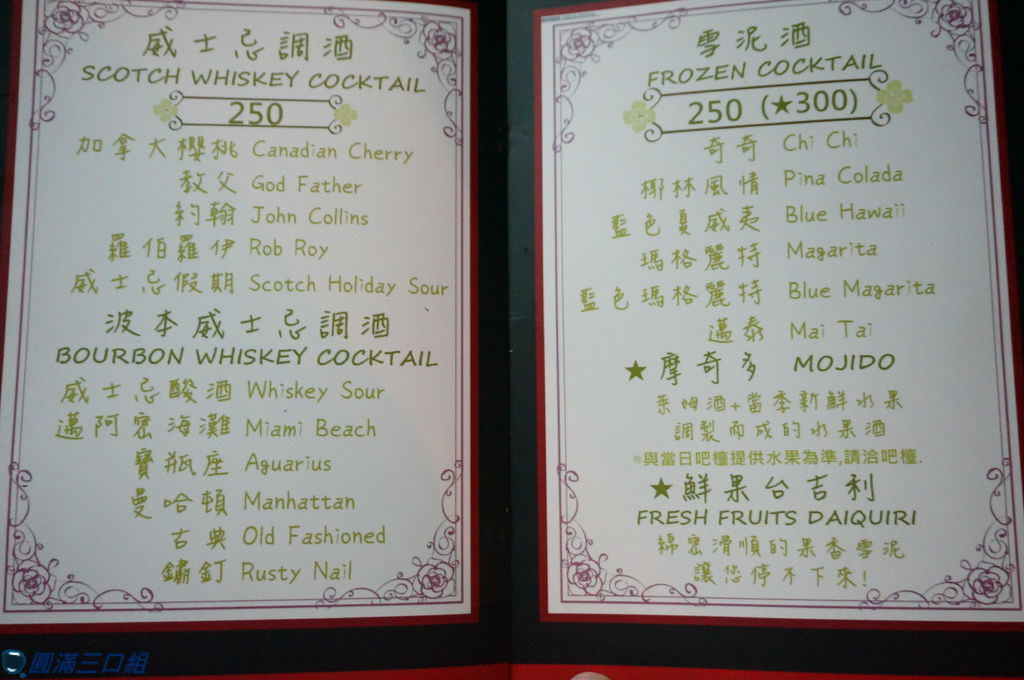 威士忌調酒
SCOTCH WHISKEY COCKTAIL
250
加拿大櫻桃 Canadian Cherry
教父 God Father
約翰 John Collins
羅伯羅伊 Rob Roy
威士忌假期 Scotch Holiday Sour
波本威士忌調酒
BOURBON WHISKEY COCKTAIL
威士忌酸酒 Whiskey Sour
邁阿密海灘 Miami Beach
寶瓶座 Aguarius
曼哈頓 Manhattan
古典 Old Fashioned
鏽釘 Rusty Nail
雪泥酒
FROZEN COCKTAIL
250 (★300)
奇奇 Chi Chi
椰林風情 Pina Colada
藍色夏威夷 Blue Hawaii
瑪格麗特 Magarita
藍色瑪格麗特 Blue Magarita
邁泰 Mai Tai
★摩奇多 MOJIDO
萊姆酒+當季新鮮水果
調製而成的水果酒
※與當日吧檯提供水果為準,請洽吧檯.
★鮮果台吉利
FRESH FRUITS DAIQUIRI
綿密滑順的果香雪泥
讓您停不下來!
圓滿三口組